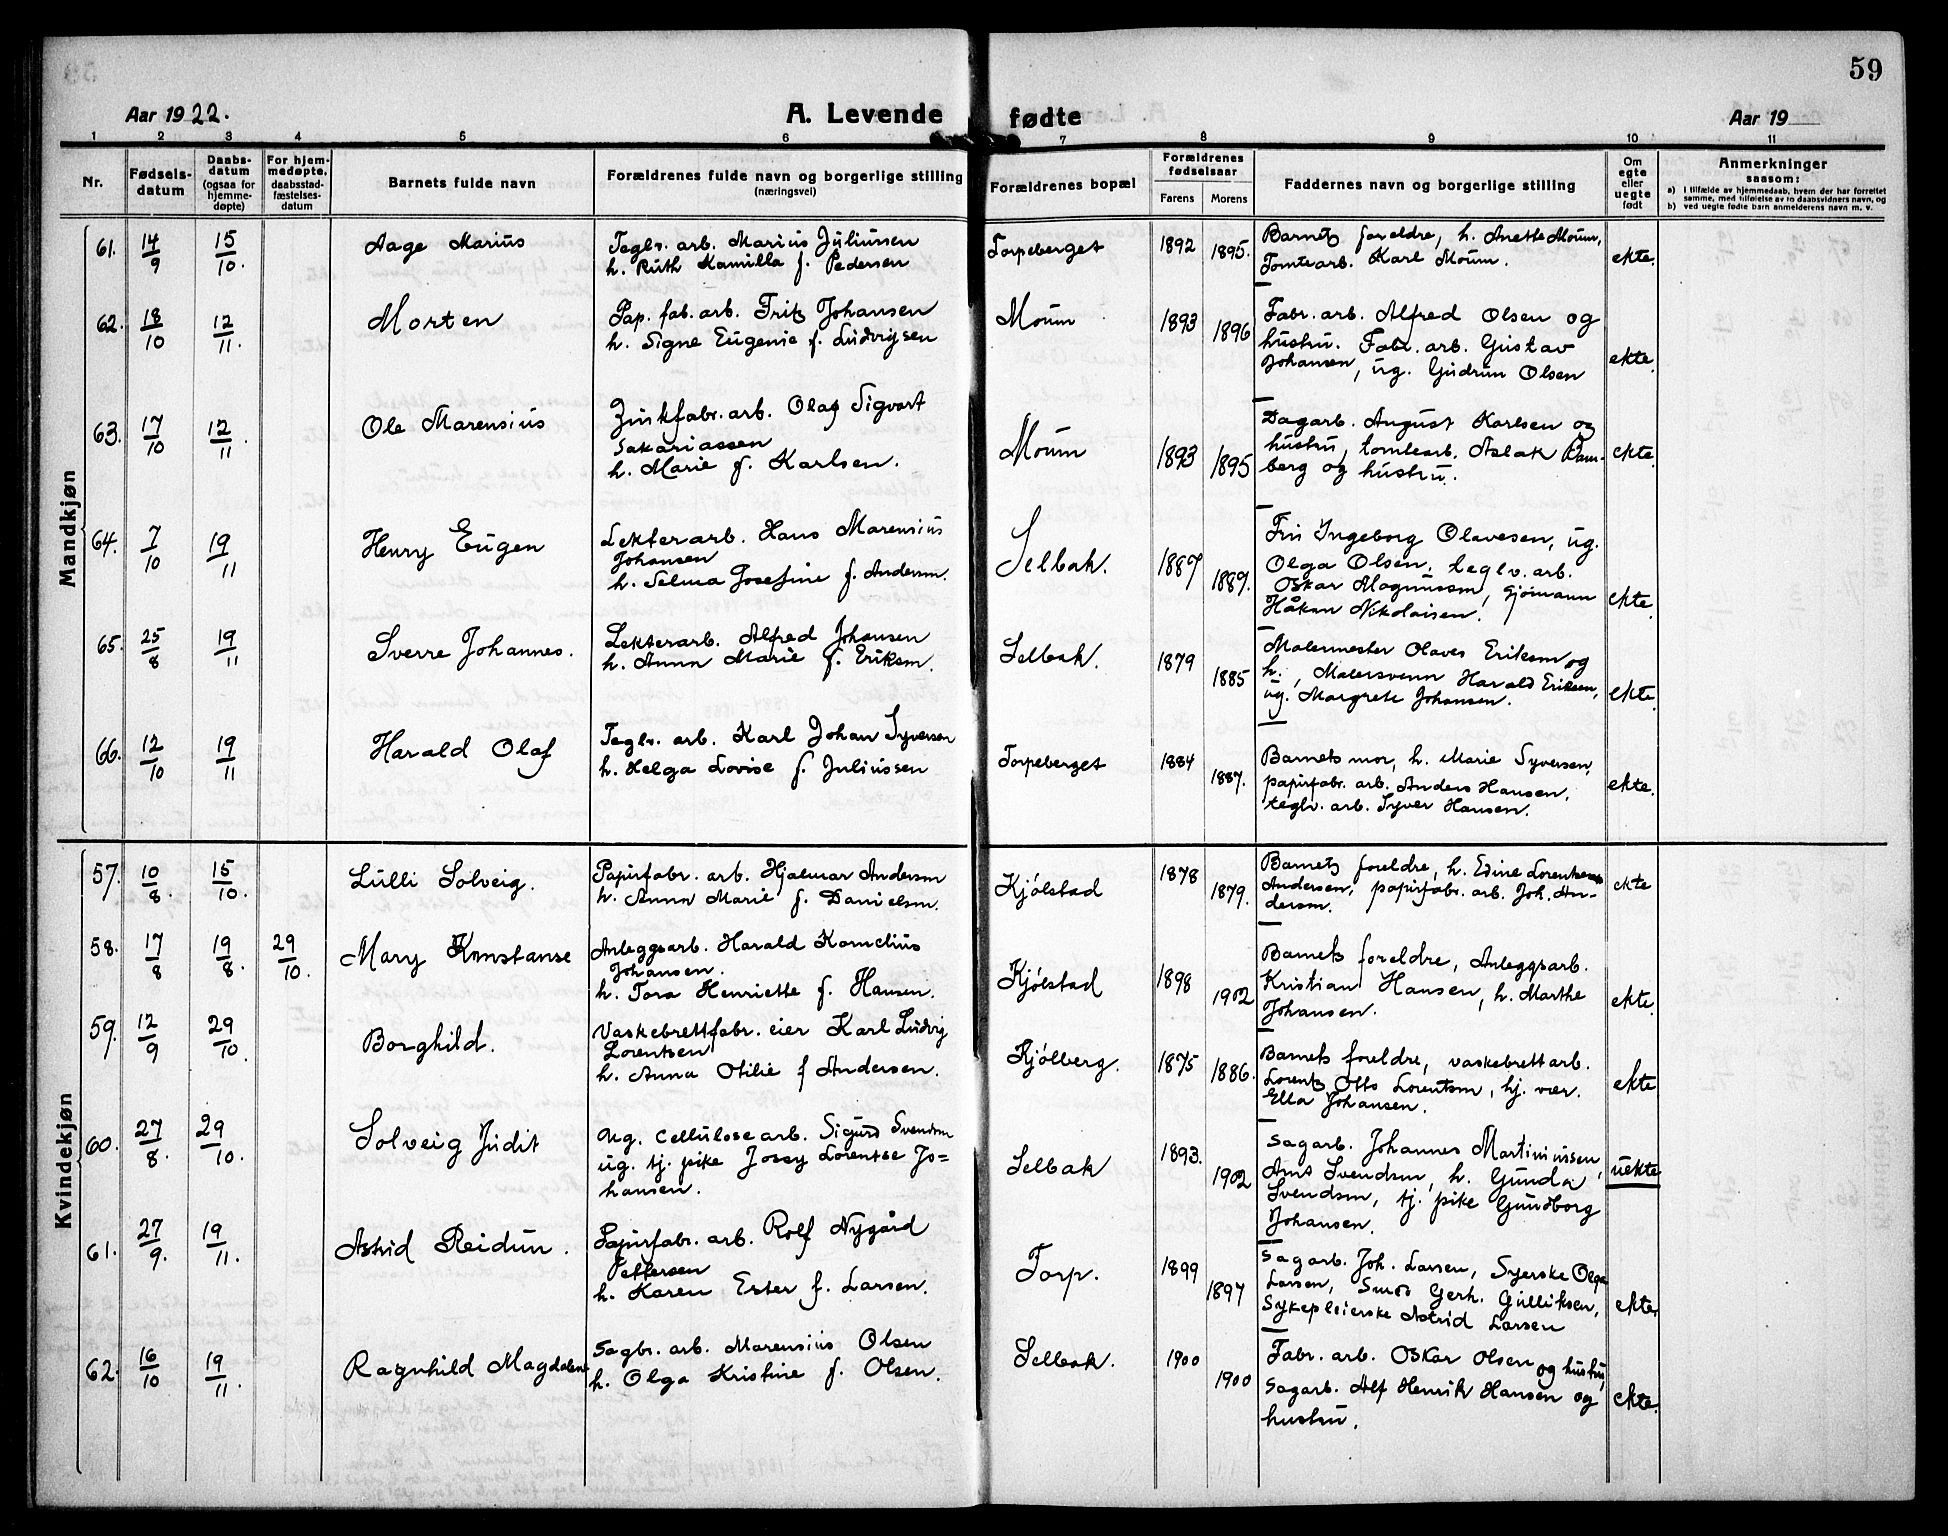 59
Aar 1922.
A. Levende fødte
Aar 19
1 2 3 4 5 6 7 8 9 10 11
Nr.
Fødsels-
datum
Daabs-
datum
(ogsaa for
hjemme-
døpte)
For hjem-
medøpte,
daabsstad-
fæstelses-
datum
Barnets fulde navn
Forældrenes fulde navn og borgerlige stilling
(næringsvei)
Forældrenes bopæl
Forældrenes
fødselsaar
Farens Morens
Faddernes navn og borgerlige stilling
Om
egte
eller
uegte
født
Anmerkninger
saasom:
a) i tilfælde av hjemmedaab, hvem der har forrettet
samme, med tilføielse av to daabsvidners navn, og
b) ved uegte fødte barn anmelderens navn m. v.
Mandkjøn
61. 14/9 15/10. Aage Marius
Teglv. arb. Marius Juliussen
h. Ruth Kamilla f. Pedersen
Torpeberget 1892 1895.
Barnets foreldre, h. Anette Moum,
Tomtearb. Karl Moum.
ekte.
62. 18/10 12/11. Morten
Pap. fab. arb. Fritz Johansen
h. Signe Eugenie f. Ludvigsen
Moum 1893 1896
Fabr. arb. Alfred Olsen og
hustru. Fabr. arb. Gustav
Johansen, ug. Gudrun Olsen
ekte.
63. 17/10 12/11. Ole Marensius
Zinkfabr. arb. Olaf Sigvart
Sakariassen
h. Marie f. Karlsen.
Moum 1893 1895
Dagarb. August Karlsen og
hustru, tomtearb. Aslak Ram-
berg og hustru.
ekte.
64. 7/10 19/11 Henry Eugen
Lekterarb. Hans Marensius
Johansen
h. Selma Josefine f. Andersen.
Selbak. 1887 1889.
Fru Ingeborg Olavesen, ug.
Olga Olsen, teglv. arb.
Oskar Magnussen, sjømann
Håkan Nikolaisen.
ekte.
65. 25/8 19/11 Sverre Johannes.
Lekterarb. Alfred Johansen
h. Anna Marie f. Eriksen.
Selbak. 1879 1885
Malermester Olaves Eriksen og
h., Malersvenn Harald Eriksen,
ug. Margrete Johansen.
ekte.
66. 12/10 19/11 Harald Olaf
Teglv. arb. Karl Johan Syversen
h. Helga Lovise f. Juliussen
Torpeberget 1884 1887.
Barnets mor, h. Marie Syversen,
papirfabr. arb. Anders Hansen,
teglv. arb. Syver Hansen.
ekte.
Kvindekjøn
57. 10/8. 15/10. Lulli Solveig.
Papirfabr. arb. Hjalmar Andersen
h. Anna Marie f. Danielsen.
Kjølstad 1878 1879.
Barnets foreldre, h. Edine Lorentsen
Andersen, papirfabr. arb. Joh. An-
dersen.
ekte
58. 17/8 19/8. 29/10. Mary Konstanse
Anleggsarb. Harald Kornelius
Johansen.
h. Tora Henriette f. Hansen.
Kjølstad 1898 1902
Barnets foreldre, Anleggsarb.
Kristian Hansen, h. Marthe
Johansen.
ekte.
59. 12/9 29/10. Borghild.
Vaskebrettfabr. eier Karl Ludvig
Lorentsen
h. Anna Otilie f Andersen.
Kjølberg. 1875 1886.
Barnets foreldre, vaskebrettarb.
Lorentz Otto Lorentsen, hj. vær.
Ella Johansen.
ekte
60. 27/8. 29/10. Solveig Judit
Ug. cellulosearb. Sigurd Svendsen
ug. tj. pike Jossy Lorentse Jo=
hansen.
Selbak 1893. 1902
Sagarb. Johannes Martiniussen,
Arnt Svendsen, h. Gunda
Svendsen, tj. pike Gundborg
Johansen.
uekte
61. 27/9. 19/11. Astrid Reidun.
Papirfabr. arb. Rolf Nygård
Pettersen
h. Karen Ester f. Larsen.
Torp. 1899 1897
Sagarb. Joh. Larsen, Syerske Olga
Larsen, Smed Gerh. Gulliksen,
Sykepleierske Astrid Larsen
ekte.
62. 16/10 19/11. Ragnhild Magdalene
Sagbr. arb. Marensius Olsen
h. Olga Kristine f. Olsen.
Selbak. 1900 1900
Fabr. arb. Oskar Olsen og hustru,
Sagarb. Alf Henrik Hansen og
hustru.
ekte.